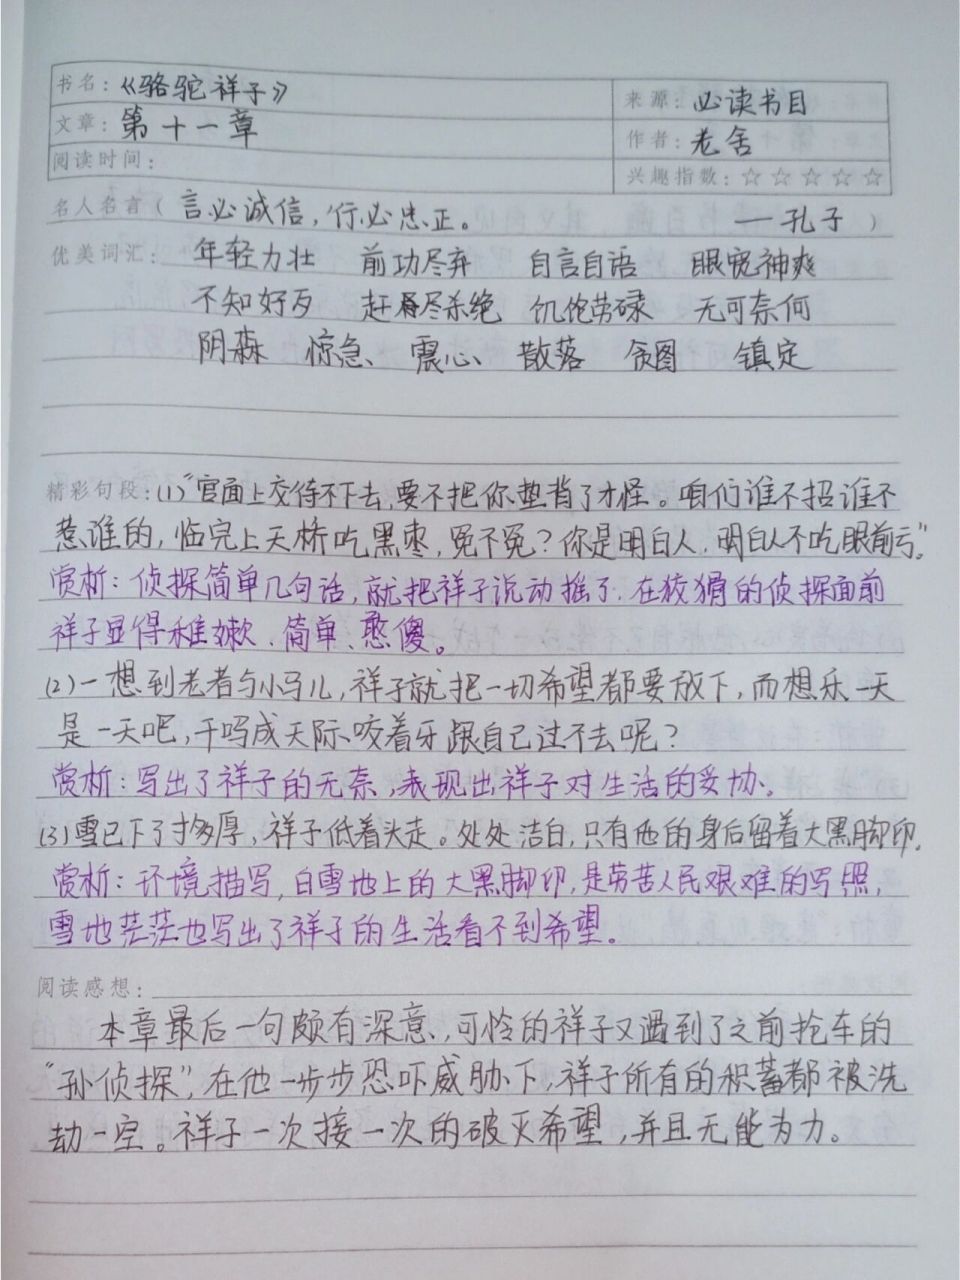 书名：《骆驼祥子》 来源：必读书目
文章：第十一章 作者：老舍
阅读时间： 兴趣指数：☆☆☆☆☆
名人名言（言必诚信，行必忠正。 ——孔子）
优美词汇：年轻力壮 前功尽弃 自言自语 眼宽神爽
不知好歹 赶尽杀绝 饥饱劳碌 无可奈何
阴森 惊急 震心 散落 贪图 镇定
精彩句段：(1)“官面上交待不下去，要不把你垫背了才怪。咱们谁不招谁不
惹谁的，临完上天桥吃黑枣，冤不冤？你是明白人，明白人不吃眼前亏。”
赏析：侦探简单几句话，就把祥子说动摇了，在狡猾的侦探面前
祥子显得稚嫩、简单、憨傻。
(2)一想到老者与小马儿，祥子就把一切希望都要放下，而想乐一天
是一天吧，干吗成天际咬着牙跟自己过不去呢？
赏析：写出了祥子的无奈，表现出祥子对生活的妥协。
(3)雪已下了寸多厚，祥子低着头走。处处洁白，只有他的身后留着大黑脚印。
赏析：环境描写，白雪地上的大黑脚印，是劳苦人民艰难的写照，
雪地茫茫也写出了祥子的生活看不到希望。
阅读感想：
本章最后一句颇有深意，可怜的祥子又遇到了之前抢车的
“孙侦探”，在他一步步恐吓威胁下，祥子所有的积蓄都被洗
劫一空。祥子一次接一次的破灭希望，并且无能为力。